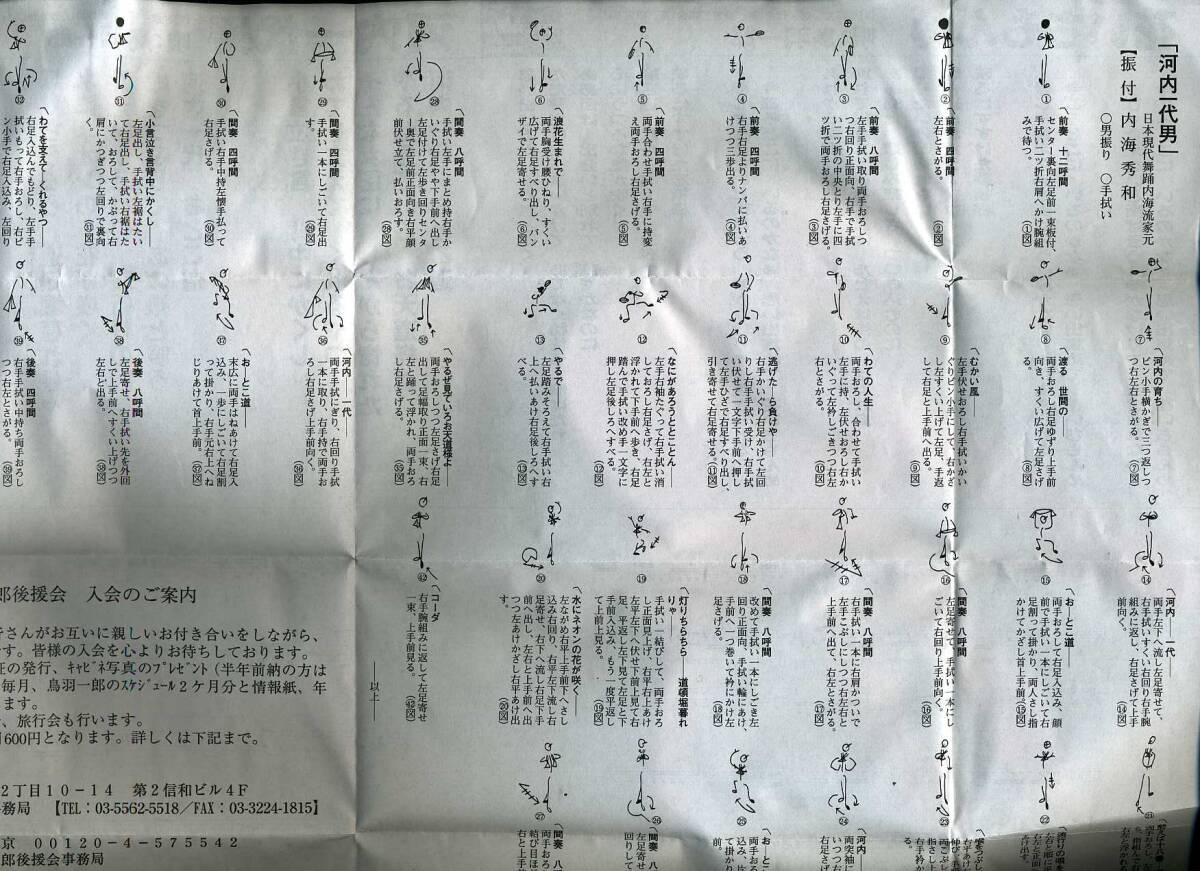 「河内一代男」
日本現代舞踊内海流家元
【振付】内海秀和
○男振り ○手拭い
①
〽前奏 十二呼間
センター裏向左足前一束板付、
手拭い二ツ折右肩へかけ腕組
みで待つ。（①図）
②
〽前奏 四呼間
左右とさがる。（②図）
③
〽前奏 八呼間
左手手拭い取り両手おろしつ
つ右回り正面向、右手で手拭
い二ツ折の中央とり左手に四
ツ折で両手おろし右足さげる。
（③図）
④
〽前奏 四呼間
右手右足よりナンバに払いあ
けつつ三歩出る。（④図）
⑤
〽前奏 四呼間
両手合わせ手拭い右手に持変
え両手おろし右足さげる。
（⑤図）
⑥
〽浪花生まれで――
両手胸受け腰ひねり、すくい
広げて右足すべり出し、バン
ザイで左足寄せる。（⑥図）
㉘
〽間奏 八呼間
手拭い左手にまとめ持右手か
いぐり右足やや上手前へ出し
左足付けて左歩き回りセンタ
ー奥で左足前正面向き右平顔
前伏せ立て、払いおろす。
（㉘図）
㉙
〽間奏 四呼間
手拭い一本にしごいて右足出
す。（㉙図）
㉚
〽間奏 四呼間
手拭い右手中持左懐手払って
右足さげる。（㉚図）
㉛
〽小言泣き言背中にかくし――
左足出し、手拭い左裾はたい
て右足出し、手拭い右裾はた
いて、おろして、かぶって右
肩にかつぎつつ左回りで裏向
く。（㉛図）
㉜
〽わてを支えて――くれるやつ――
右足入込んでもどり、左手手
拭いもって右手おろし、右ビ
ン小手で右足入込み、左回り
⑦
〽河内の育ち――
ビン小手横かぎで三つ返しつ
つ右左右とさがる。（⑦図）
⑧
〽渡る 世間の――
両手おろし右足ゆずり上手前
向き、すくい広げて左足さげ
る。（⑧図）
⑨
〽むかい風――
左手伏せおろし右手手拭いかい
ぐりビン小手にして、右かざ
し左すくい上げて左足、手返
して右足と上手前へ出る。
（⑨図）
⑩
〽わての人生――
両手おろし、合わせて手拭い
左手に持、左伏せおろし右か
いぐって左衿しごきつつ右左
右とさがる。（⑩図）
⑪
〽逃げた――ら負けや――
右手かいぐり右足かけて左回
りし右手手拭い受け、右手拭
い伏せて一文字下手前へ押し
て左手ひざで右足すべり出し、
引き寄せて右足寄せる。（⑪図）
⑫
〽なにがあろうととことん――
左手右袖たぐって右手拭い消
しておろし右足さげ、右左と
浮かれて下手前へ歩き、右足
踏んで手拭い改め手一文字に
押し左足後しろへすべる。
（⑫図）
⑬
〽やるで――
左足踏みそろえて右手拭い右
上へ払いあけ右足後しろへす
べる。（⑬図）
㉟
〽やるぜ見ていろお天道様よ――
両手おろしつつ左足さげ右足
出して足幅取り正面一束、右
左と踊って浮かれ、両手おろ
し右足さげる。（㉟図）
㊱
〽河内――一代
両手手拭にぎり、右回り手拭
一本に取り、右手持で両手お
ろし右足さげ上手前向く。
（㊱図）
㊲
〽お――とこ道
末広に両手はねあけて右足入
込み、一歩にしごいて右足割
って掛かり、右手元右上へね
じりあけて首上手前。（㊲図）
㊳
〽後奏 八呼間
左足寄せ、右手拭い先を外回
しで上手前へすくい上げつつ
右左と出る。（㊳図）
㊴
〽後奏 四呼間
右手手拭い中持ち両手おろし
つつ右左とさがる。（㊴図）
⑭
〽河内――一代
両手左下へ流し左足寄せて、
右手拭いすくい右回り右手腕
組みに返し、右足さげて上手
前向く。（⑭図）
⑮
〽お――とこ道
両手おろして右足入込み、顔
前で手拭い一本にしごいて右
足割って掛かり、両人さし指
かけてかざし首上手前。（⑮図）
⑯
〽間奏 四呼間
左足寄せつつ、手拭い一本にし
ごいて右回り上手前向く。
（⑯図）
⑰
〽間奏 八呼間
右手手拭い一本に右肩かついで
左手こぶしにしつつ右左右と
上手前へ出て、左右とさがる。
（⑰図）
⑱
〽間奏 八呼間
改めて手拭い一本にしごき左
回り正面向、手拭い輪にあけ、
左肩へ一つ巻いて衿にかけ左
足さげる。（⑱図）
⑲
〽灯りちらちら――道頓堀暮れ
りゃ
手拭い一結びして、両手おろ
し正面見上げ、右平右上あけ
左平左下へ伏せ下前上見て右
足、平返し左下見て左足と下
手前入込み、もう一度平返し
て上手前上見る。（⑲図）
⑳
〽水にネオンの花が咲く――
左ながめ右平上手前下へさし
込み右回り、右平左下流し右
足寄せ、右下へ流し右足下手
前へ出し、左右と上手前へ出
つつ左あけかざし右平あけ出
す。（⑳図）
㊷
〽コーダ
右手腕組みに返して左足寄せ
一束、上手前見る。（㊷図）
――以上――
㉑
㉒
㉓
㉔
〽河内――
両突袖に
いつつ右
右足さげ
㉕
〽お――とこ
両手おろ
込み、片
て掛かり
前。
㉖
〽間奏 八
左足寄せ
回りして
㉗
〽間奏 八
両手おろ
結び目ほ
右と上手前
郎後援会 入会のご案内
さんがお互いに親しいお付き合いをしながら、
です。皆様の入会を心よりお待ちしております。
証の発行、ｷｬﾋﾞﾈ写真のﾌﾟﾚｾﾞﾝﾄ（半年前納の方は
毎月、鳥羽一郎のｽｹｼﾞｭｰﾙ２ケ月分と情報紙、年
ます。
、旅行会も行います。
600円となります。詳しくは下記まで。
２丁目１０－１４ 第２信和ビル４Ｆ
務局 【TEL：03-5562-5518／FAX：03-3224-1815】
京 ００１２０－４－５７５５４２
郎後援会事務局